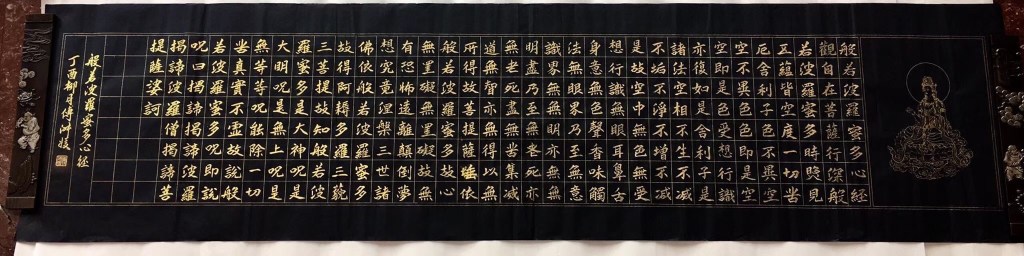 般若波羅蜜多心經
觀自在菩薩行深般
若波羅蜜多時照見
五蘊皆空度一切苦
厄舍利子色不異空
空不異色色即是空
空即是色受想行識
亦復如是舍利子是
諸法空相不生不滅
不垢不淨不增不減
是故空中無色無受
想行識無眼耳鼻舌
身意無色聲香味觸
法無眼界乃至無意
識界無無明亦無無
明盡乃至無老死亦
無老死盡無苦集滅
道無智亦無得以無
所得故菩提薩埵依
般若波羅蜜多故心
無罣礙無罣礙故無
有恐怖遠離顛倒夢
想究竟涅槃三世諸
佛依般若波羅蜜多
故得阿耨多羅三藐
三菩提故知般若波
羅蜜多是大神呪是
大明呪是無上呪是
無等等呪能除一切
苦真實不虛故說般
若波羅蜜多呪即說
呪曰揭諦揭諦波羅
揭諦波羅僧揭諦菩
提薩婆訶
般若波羅蜜多心經
丁酉柳月傅